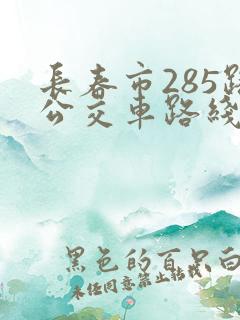 長春市285路
公交車路綫
黑色的百只白
未经同意禁止转载